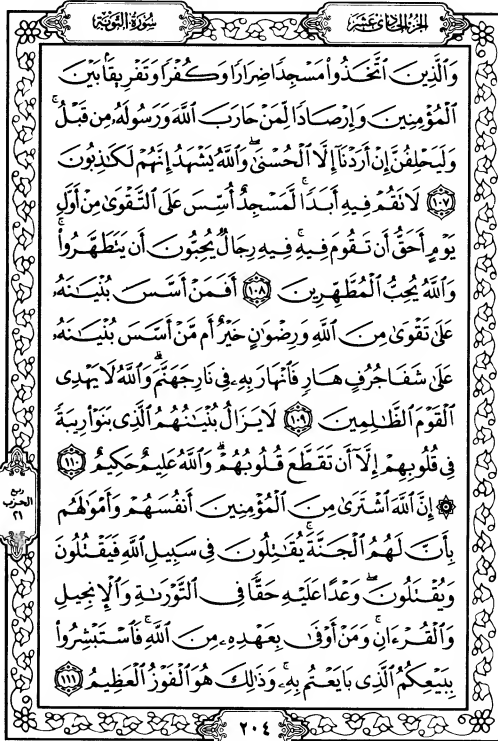 سورة التوبة
الجزء الحادى عشر
وَٱلَّذِينَ ٱتَّخَذُوا۟ مَسْجِدًا ضِرَارًا وَكُفْرًا وَتَفْرِيقًۢا بَيْنَ
ٱلْمُؤْمِنِينَ وَإِرْصَادًا لِّمَنْ حَارَبَ ٱللَّهَ وَرَسُولَهُۥ مِن قَبْلُ ۚ
وَلَيَحْلِفُنَّ إِنْ أَرَدْنَآ إِلَّا ٱلْحُسْنَىٰ ۖ وَٱللَّهُ يَشْهَدُ إِنَّهُمْ لَكَٰذِبُونَ
١٠٧ لَا تَقُمْ فِيهِ أَبَدًا ۚ لَّمَسْجِدٌ أُسِّسَ عَلَى ٱلتَّقْوَىٰ مِنْ أَوَّلِ
يَوْمٍ أَحَقُّ أَن تَقُومَ فِيهِ ۚ فِيهِ رِجَالٌ يُحِبُّونَ أَن يَتَطَهَّرُوا۟ ۚ
وَٱللَّهُ يُحِبُّ ٱلْمُطَّهِّرِينَ ١٠٨ أَفَمَنْ أَسَّسَ بُنْيَٰنَهُۥ
عَلَىٰ تَقْوَىٰ مِنَ ٱللَّهِ وَرِضْوَٰنٍ خَيْرٌ أَم مَّنْ أَسَّسَ بُنْيَٰنَهُۥ
عَلَىٰ شَفَا جُرُفٍ هَارٍ فَٱنْهَارَ بِهِۦ فِى نَارِ جَهَنَّمَ ۗ وَٱللَّهُ لَا يَهْدِى
ٱلْقَوْمَ ٱلظَّٰلِمِينَ ١٠٩ لَا يَزَالُ بُنْيَٰنُهُمُ ٱلَّذِى بَنَوْا۟ رِيبَةً
فِى قُلُوبِهِمْ إِلَّآ أَن تَقَطَّعَ قُلُوبُهُمْ ۗ وَٱللَّهُ عَلِيمٌ حَكِيمٌ ١١٠
۞ إِنَّ ٱللَّهَ ٱشْتَرَىٰ مِنَ ٱلْمُؤْمِنِينَ أَنفُسَهُمْ وَأَمْوَٰلَهُم
بِأَنَّ لَهُمُ ٱلْجَنَّةَ ۚ يُقَٰتِلُونَ فِى سَبِيلِ ٱللَّهِ فَيَقْتُلُونَ
وَيُقْتَلُونَ ۖ وَعْدًا عَلَيْهِ حَقًّا فِى ٱلتَّوْرَىٰةِ وَٱلْإِنجِيلِ
وَٱلْقُرْءَانِ ۚ وَمَنْ أَوْفَىٰ بِعَهْدِهِۦ مِنَ ٱللَّهِ ۚ فَٱسْتَبْشِرُوا۟
بِبَيْعِكُمُ ٱلَّذِى بَايَعْتُم بِهِۦ ۚ وَذَٰلِكَ هُوَ ٱلْفَوْزُ ٱلْعَظِيمُ ١١١
ربع
الحزب
٢١
٢٠٤